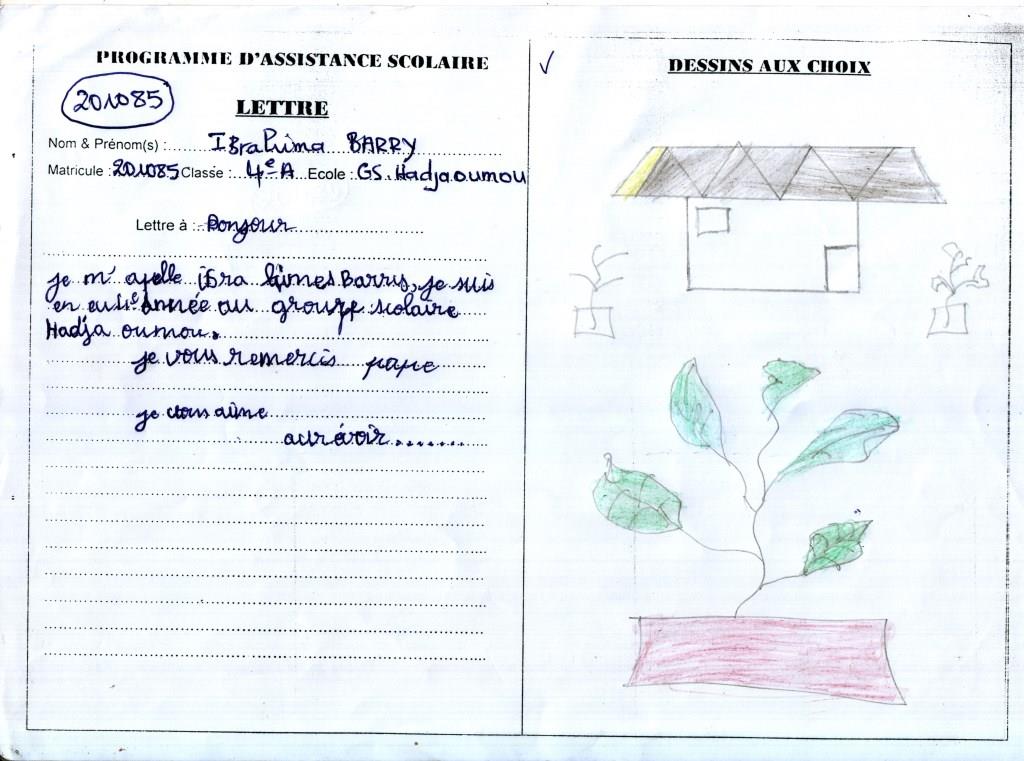 PROGRAMME D'ASSISTANCE SCOLAIRE
201085
LETTRE
Nom & Prénom(s) : Ibrahima BARRY
Matricule : 201085 Classe : 4e A Ecole : GS. Hadja oumou
Lettre à : Bonjour
je m' apelle ibra himes Barry, je suis
en 4e année au groupe scolaire
Hadja oumou.
je vous remercis pape
je aime
aurévoir........
DESSINS AUX CHOIX